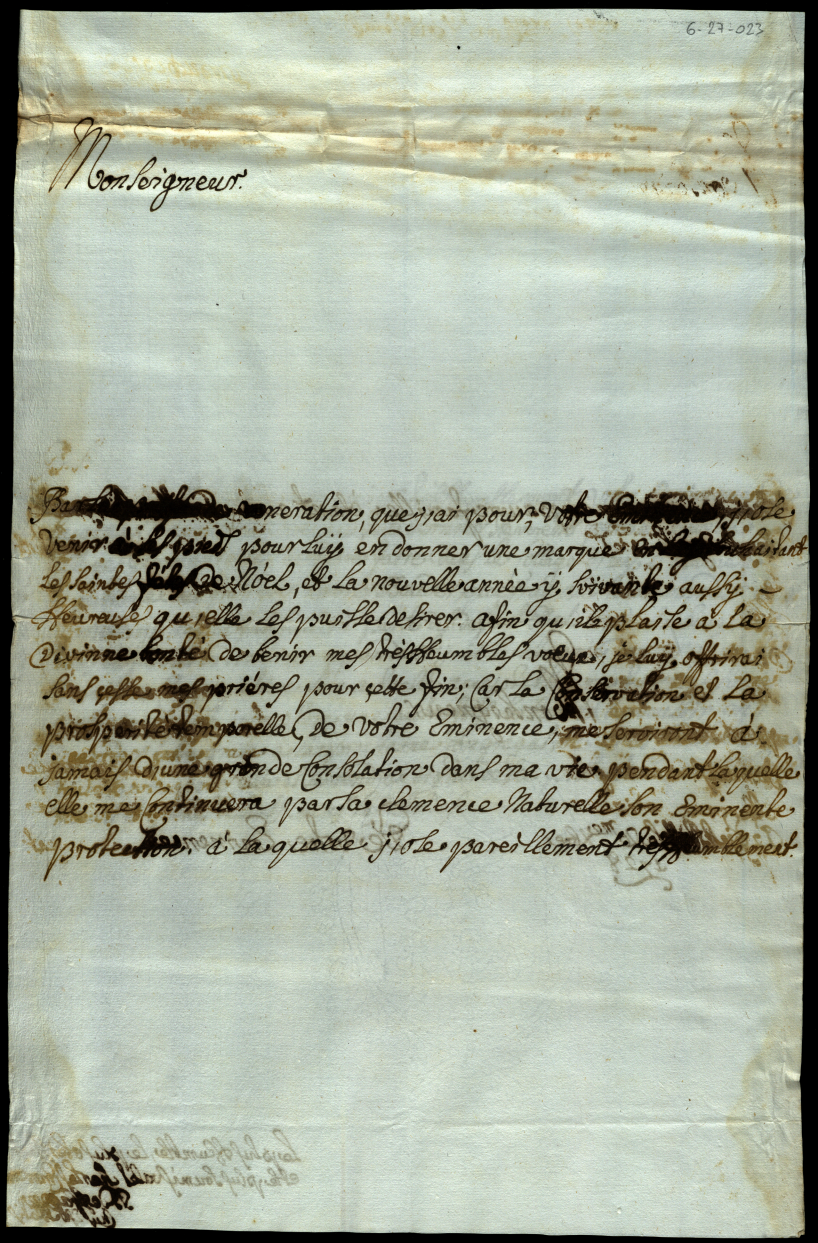 6-27-023
Monseigneur.
veneration, que j'ai pour, Votre Eminence, j'ose
venir à ses pieds pour luy en donner une marque en luy souhaitant
les saintes fêtes de Nöel, et la nouvelle année ÿ suivante aussy
Heureuse qu'elle les puisse desirer. afin qu'il plaise à la
Divinne bonté de benir mes trésheumbles vœux, je luy offrirai
sans cesse mes priéres pour cette fin; Car la Conservation et la
prosperité temporelle, de votre Eminence, me serviront à
jamais d'une grande Consolation dans ma vie, pendant laquelle
elle me Continuera par sa clemence Naturelle son Eminente
protection. à la quelle j'ose pareillement trésheumblement.